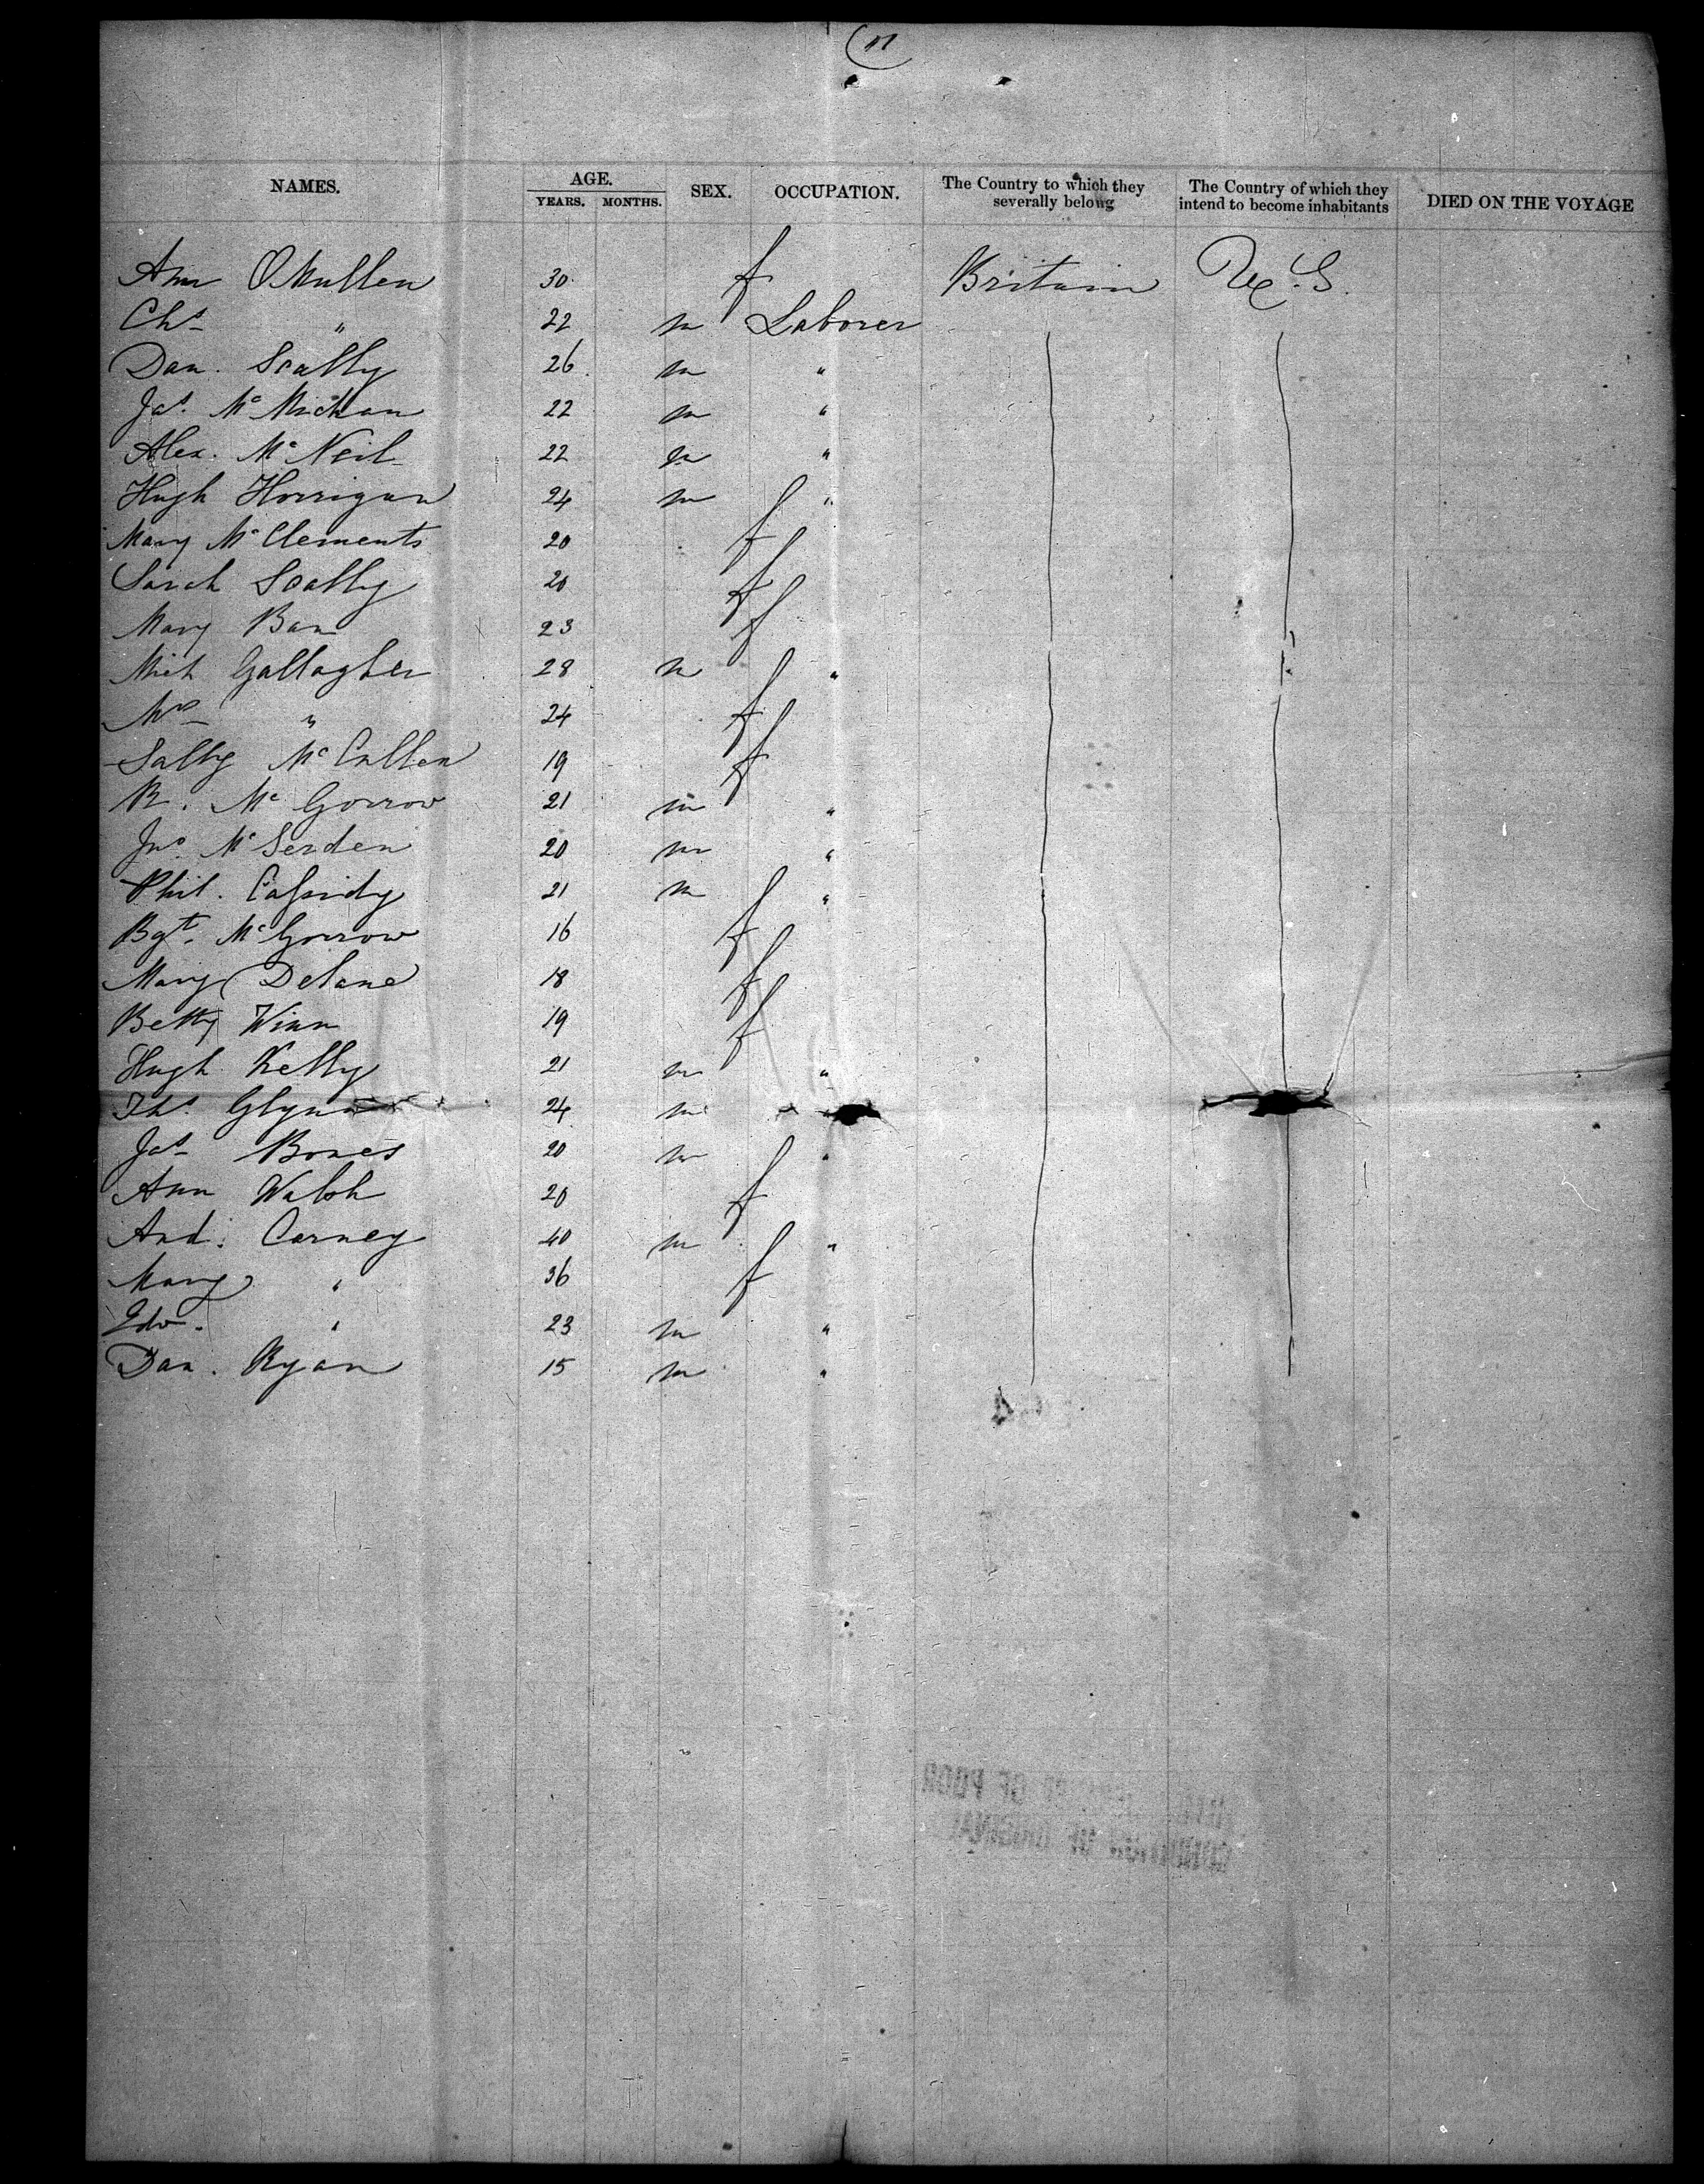 11
NAMES. AGE. YEARS. MONTHS. SEX. OCCUPATION. The Country to which they severally belong The Country of which they intend to become inhabitants DIED ON THE VOYAGE
Ann OMullen 30 f Britain U.S.
Chs " 22 m Laborer
Dan. Scally 26 m "
Jas. McMichan 22 m "
Alex. McNeil 22 m "
Hugh Horrigan 24 m "
Mary McClements 20 f
Sarah Scally 20 f
Mary Ban 23 f
Mich Gallagher 28 m "
Mrs " 24 f
Sally McCullen 19 f
R. McGorrow 21 m "
Jno. McSerden 20 m "
Phil. Cassidy 21 m "
Bgt. McGorrow 16 f
Mary Delane 18 f
Betty Winn 19 f
Hugh Kelly 21 m "
Ths. Glynn 24 m "
Jas Bones 20 m "
Ann Walsh 20 f
And. Carney 40 m "
Mary " 36 f
Edw. " 23 m "
Dan. Ryan 15 m "
OF POOR
CONDITION OF ORIGINAL